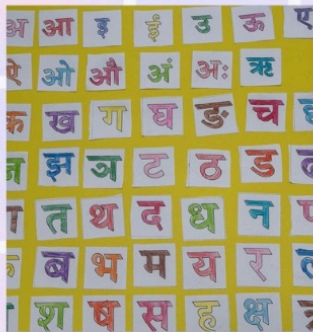 अ आ इ ई उ ऊ ए
ऐ ओ औ अं अः ऋ
क ख ग घ ङ च छ
ज झ ञ ट ठ ड ढ
त थ द ध न प
ब भ म य र ल
श ष स ह क्ष त्र